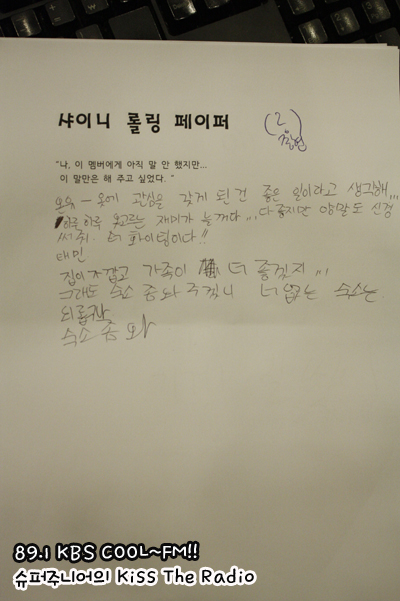 샤이니 롤링 페이퍼
(2)
"나, 이 멤버에게 아직 말 안 했지만...
이 말만은 해 주고 싶었다. "
온유 - 옷에 관심을 갖게 된건 좋은 일이라고 생각해...
하루하루 옷고르는 재미가 늘꺼다... 다좋지만 양말도 신경
써줘. 너 화이팅이다!!
태민
집이 가깝고 가족이 더 좋겠지...
그래도 숙소 좀 와 주겠니 너 없는 숙소는
외롭다
숙소 좀 와
89.1 KBS COOL~FM!!
슈퍼주니어의 Kiss The Radio